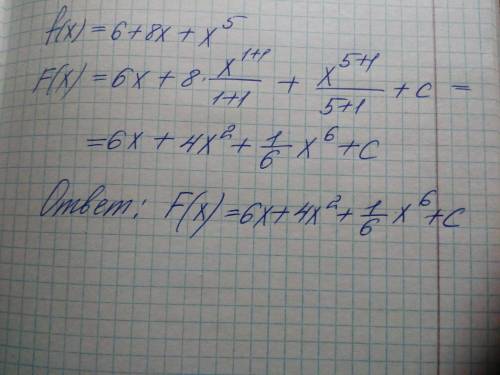 f(x) = 6 + 8x + x⁵
F(x) = 6x + 8 · x¹⁺¹/1+1 + x⁵⁺¹/5+1 + c =
= 6x + 4x² + 1/6 x⁶ + C
Ответ: F(x) = 6x + 4x² + 1/6 x⁶ + C